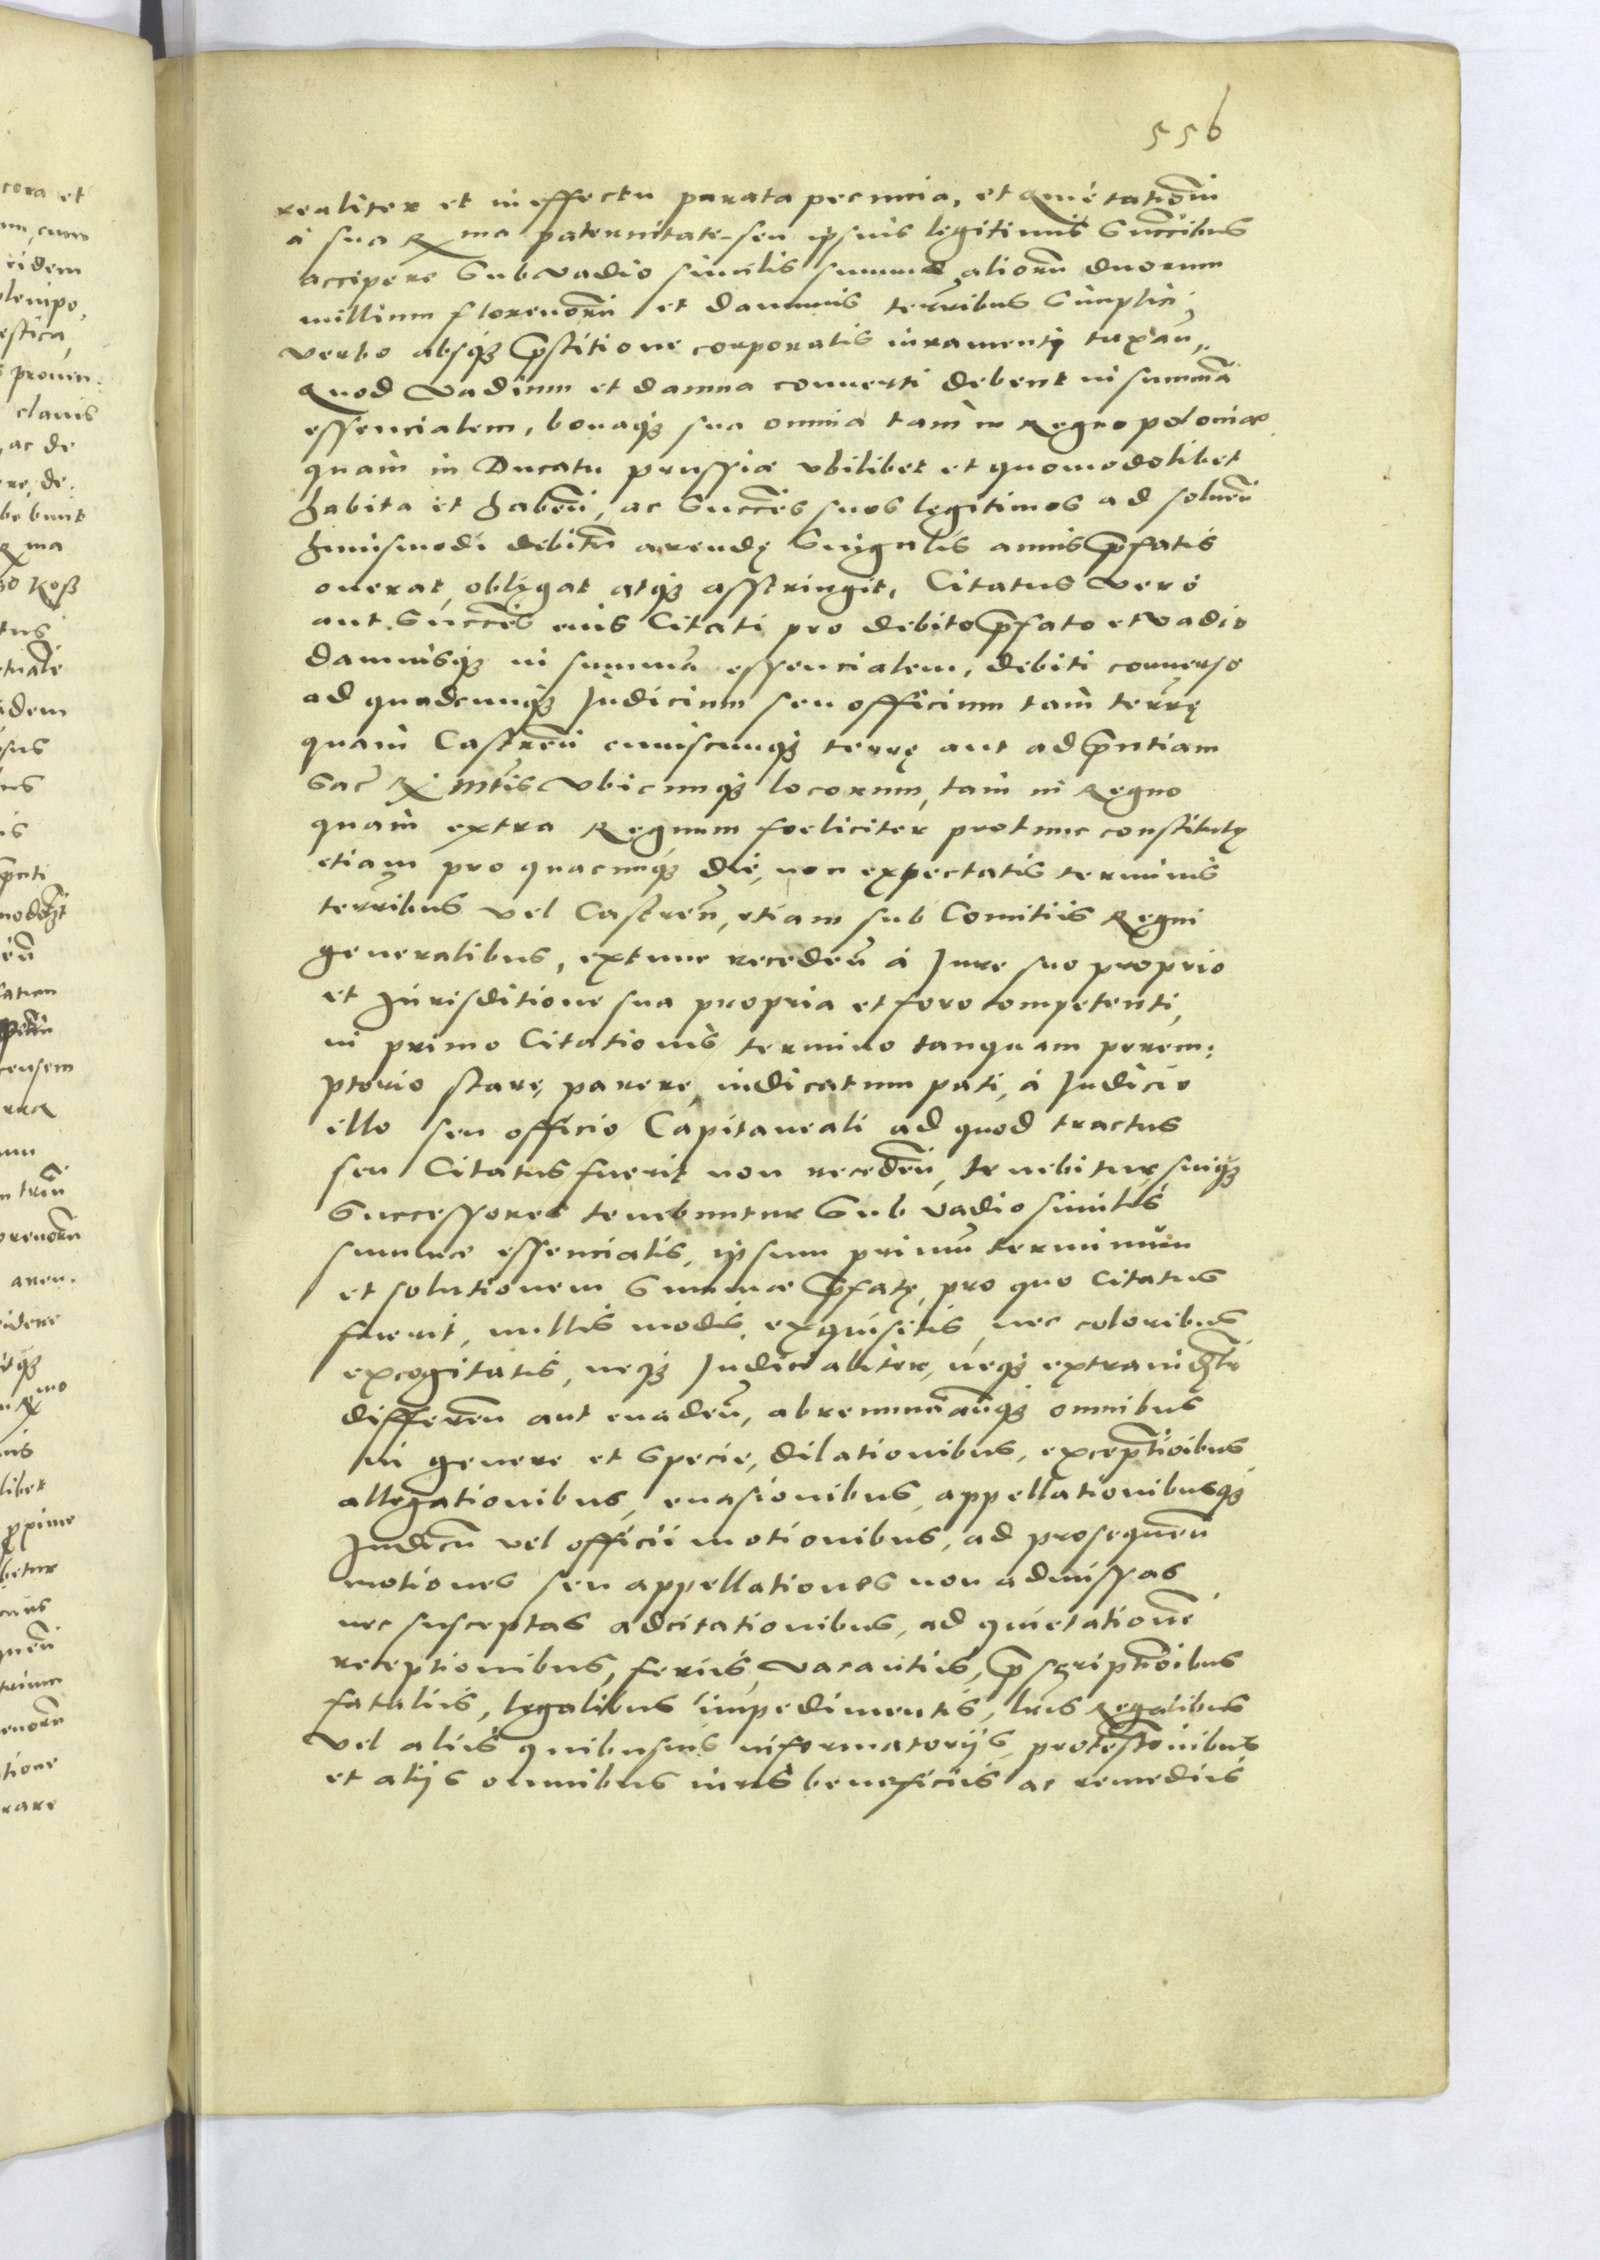 556
realiter et in effectu parata pecunia, et quietationem
à sua Rma paternitate seu ipsius legitimis Succribus
accipere Sub vadio similis summae aliorũ duorum
millium florenorũ et damnis terrribus Simplici
verbo absq̨ p̄stitione corporalis iuramenti taxań
Quod vadium et damna converti debent in summã
essencialem, bonaq̨ sua omnia tam in Regno poloniae
quam in Ducatu prussiae vbilibet et quomodolibet
habita et habeñ, ac Succes suos legitimos ad solueñ
huiusmodi debitũ arendę Singulis annis p̄fatis
onerat, obligat atq̨ asstringit, Citatus vero
aut Succes eius Citati pro debito p̄fato et vadio
damnisq̨ in summã essencialem, debiti converso
ad quodcunq̨ Judicium seu officium tam terrę
quam Castreñ cuiuscunq̨ terrę aut ad p̄ntiam
Sac R Mtis vbicunq̨ locorum, tam in Regno
quam extra Regnum foeliciter protunc constitutę
etiam pro quacunq̨ die, non expectatis terminis
terrribus vel Castreñ, etiam sub Comitiis Regni
generalibus, extunc recedeñ à Jure suo proprio
et Jurisditione sua propria et foro competenti,
in primo Citationis termino tanquam perem:
ptorio stare, parere, iudicatum pati, à Judicio
illo seu officio Capitaneali ad quod tractus
seu Citatus fuerit non recedeñ, tenebitur, suiq̨
Successores tenebuntur Sub vadio similis
summae essencialis, ipsum primũ terminum
et solutionem Summae p̄fatę, pro quo Citatus
fuerit, nullis modis exquisitis, nec coloribus
excogitatis, neq̨ Judicialiter, neq̨
differeñ aut evadeñ, omnibus
in genere et Specie, dilationibus, exceptioibus
allegationibus, evasionibus, appellationibusq̨
Judicũ vel officii motionibus, ad prosequeñ
motiones seu appellationes non admissas
nec susceptas adcitationibus, ad quietationẽ
receptionibus, feriis, vacantiis, p̄scriptioibus
fataliis, legalibus impedimentis, lris Regalibus
vel aliis quibusuis informatoriis, protestonibus
et aliis omnibus iuris beneficiis ac remediis